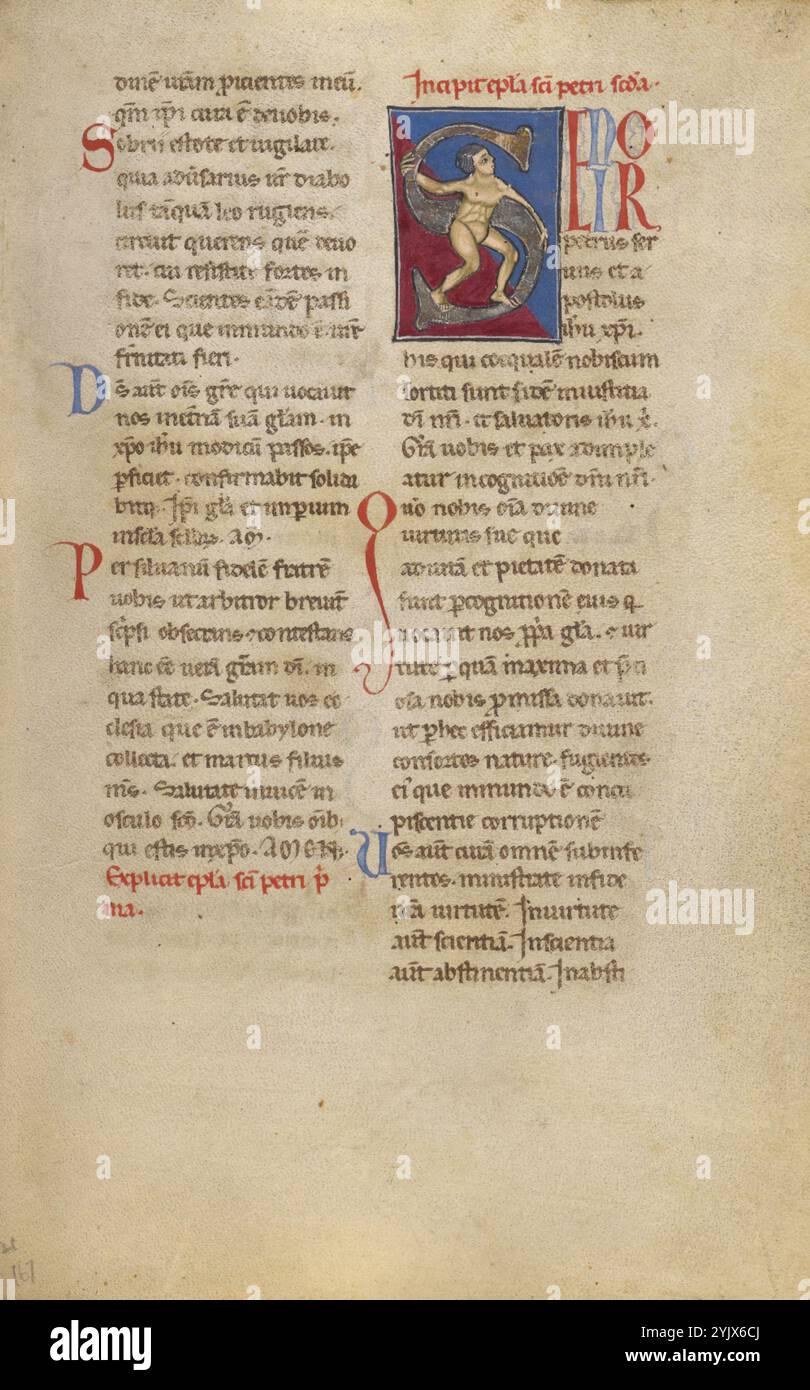 dinē urām proicientes in eū.
qm̄ ipi cura ē de uobis.
Sobrii estote et uigilate.
quia adūsarius ur̄ diabo
lus tāquā leo rugiens.
circuit querens quē deuo
ret. cui resistite fortes in
fide. Scientes eādē passi
onē ei que in mundo ē. ur̄e
fr̄nitati fieri.
Ds̄ aūt ois̄ gr̄e qui uocauit
nos in et̄nā suā gl̄am. in
xp̄o ih̄u modicū passos. ip̄e
ꝑficiet. confirmabit solida
bitqȝ. Ip̄i gl̄a et imperium
in scl̄a scl̄oꝝ. am̄.
Per siluanū fidelē fratrē
uobis ut arbitror breuit̄
scͥpsi obsecrans ⁊ contestans
hanc ēe uerā gr̄am di̅. in
qua state. Salutat uos ec
clesia que ē in babylone
collecta. et marcus filius
ms̄. Salutate inuicē in
osculo sc̄o. Gr̄a uobis oīb;
qui estis in xp̄o. AMEN.
Explicit epl̄a sc̄i petri pͥ
ma.
Incipit epl̄a sc̄i petri sc̄da.
SIMON
EIR
petrus ser
uus et a
postolus
ih̄u xp̄i.
his qui coequalē nobiscum
sortiti sunt fidē in iustitia
di̅ nr̄i. et saluatoris ih̄u x̄.
Gr̄a uobis et pax adimple
atur in cognitiōe dn̄i nr̄i.
Quō nobis oīa diuine
uirtutis sue que
ad uitā et pietatē donata
sunt ꝑ cognitionē eius q
uocauit nos ꝓp̄a gl̄a. ⁊ uir
tute ꝑ quā maxima et p̄ci
osa nobis ꝓmissa donauit.
ut ꝑ hec efficiamur diuine
consortes nature. fugientes
ei̅ que in mundo ē concu
piscentie corruptionē
Uos aūt curā omnē subinfe
rentes. ministrate in fide
ur̄a uirtutē. In uirtute
aūt scientiā. In scientia
aūt abstinentiā. In absti
167
alamy
Image ID: 2YJX6CJ
www.alamy.com